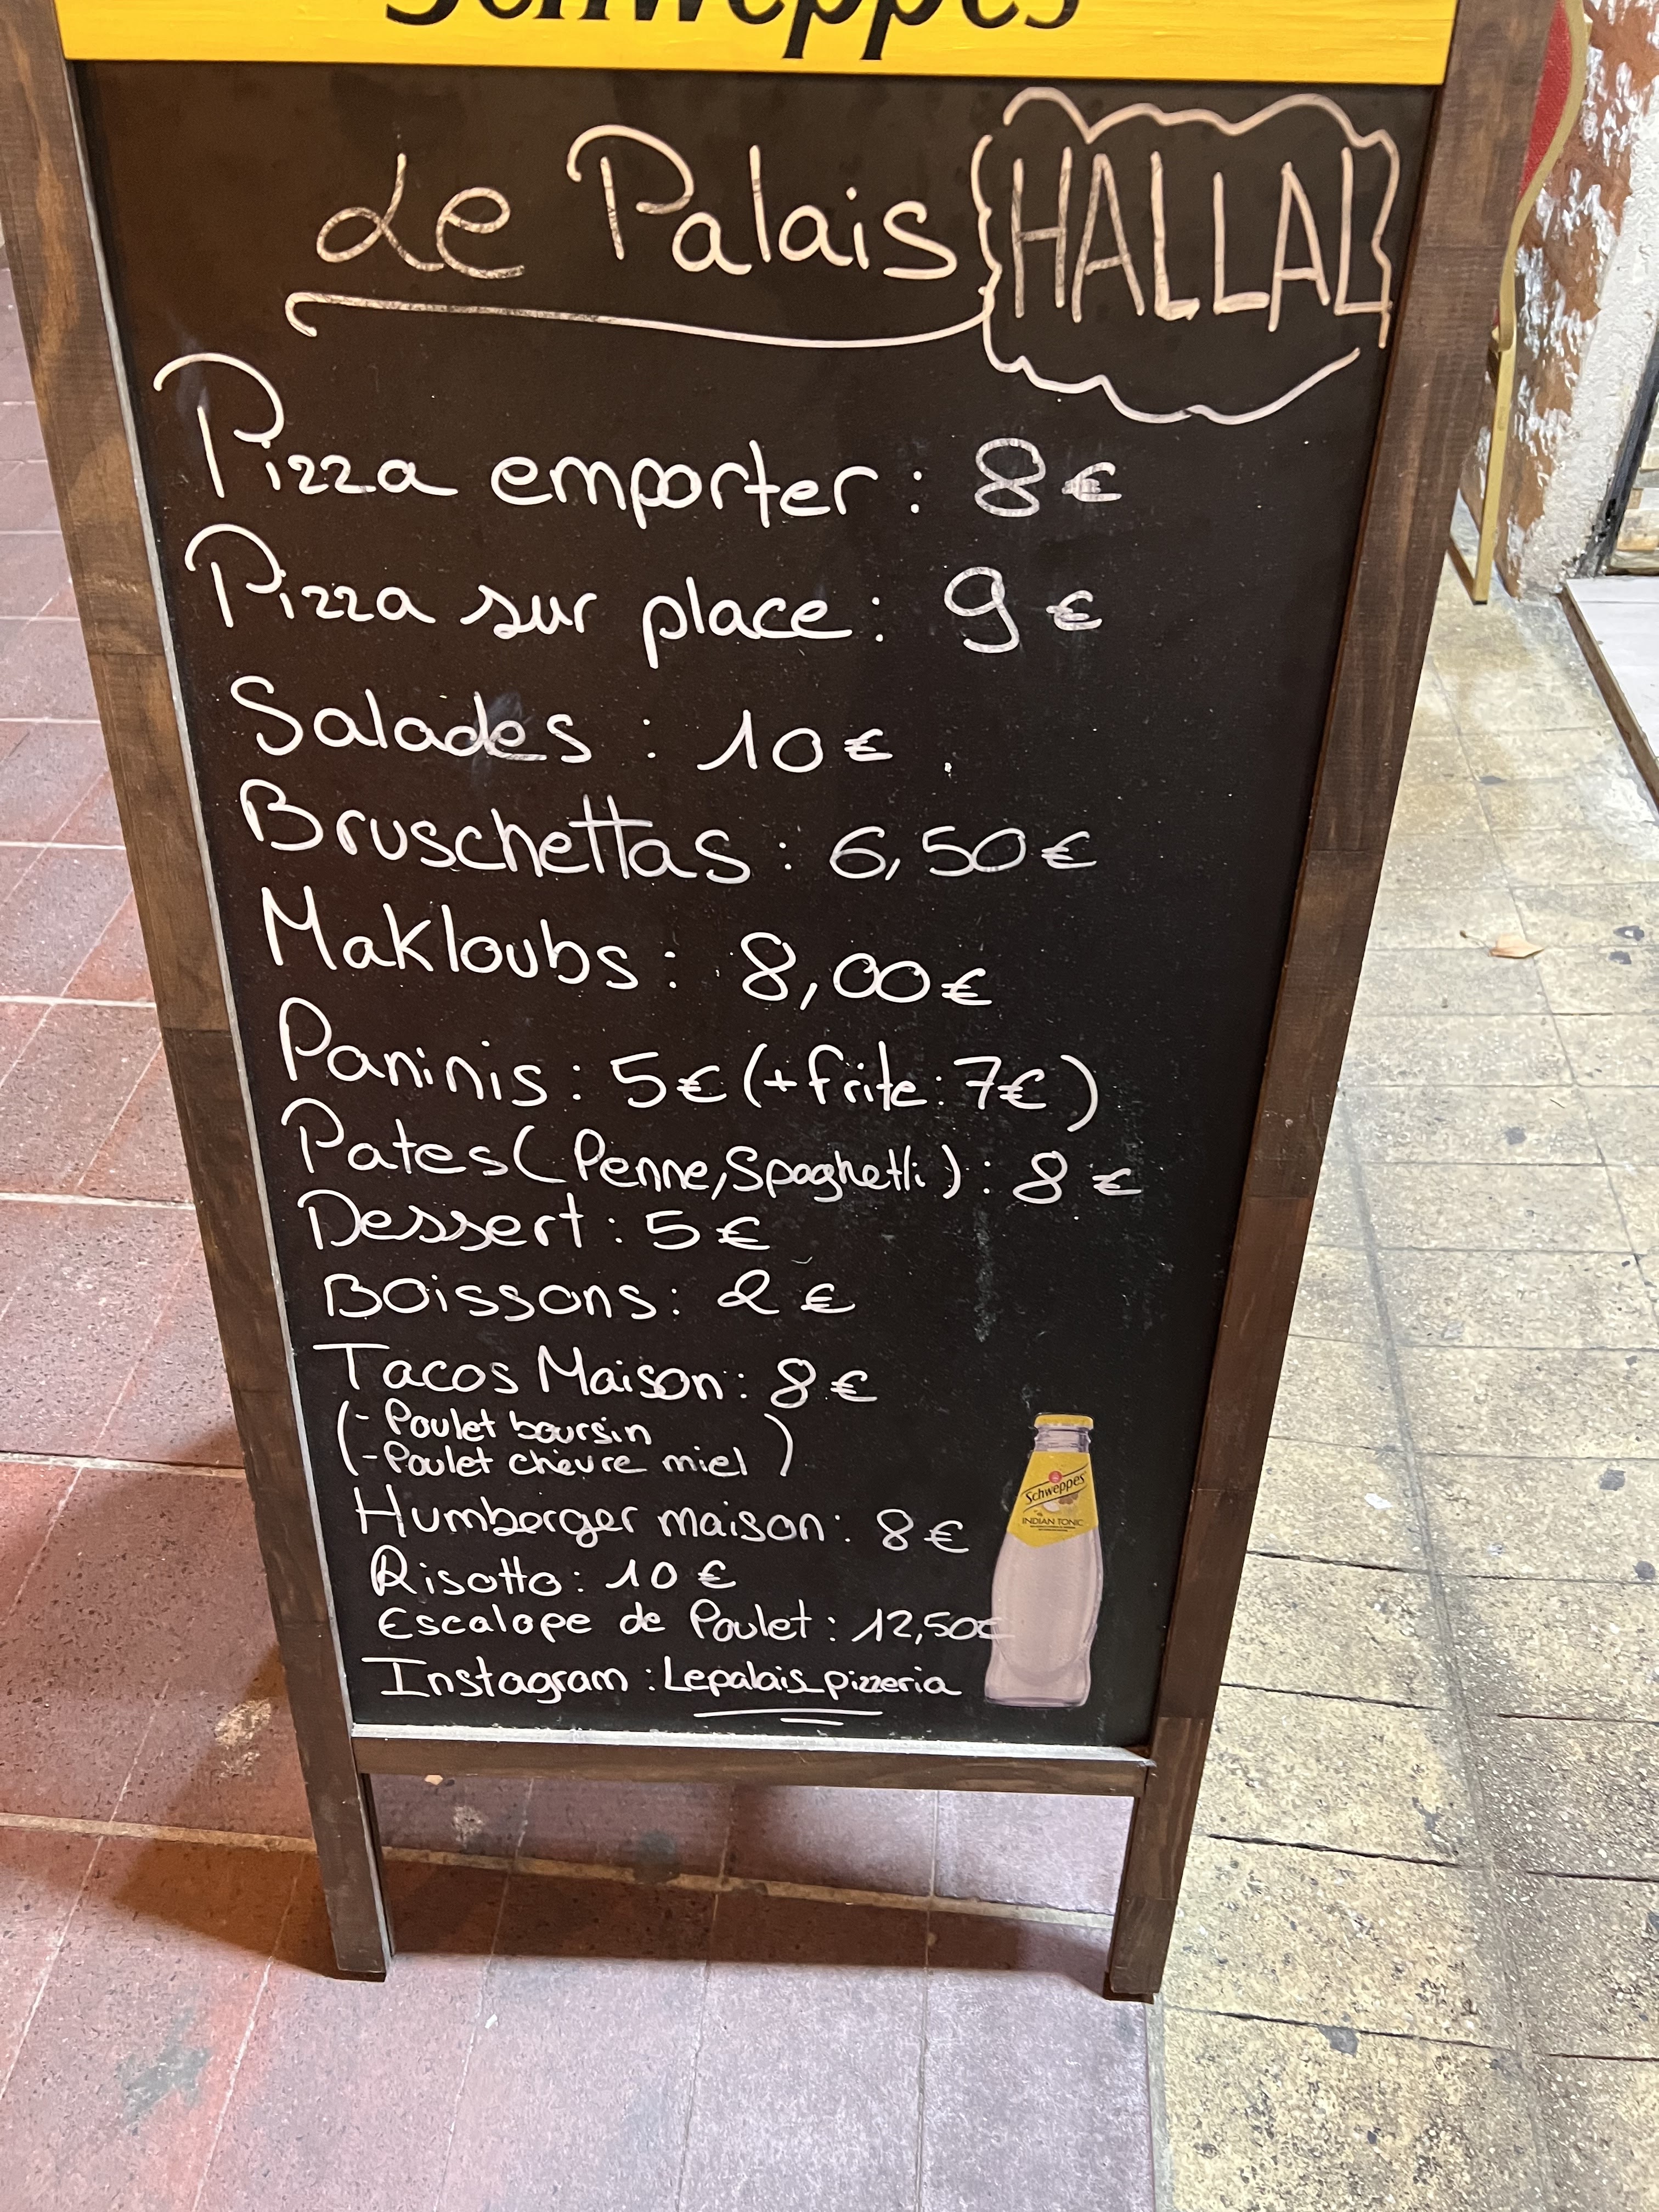 Schweppes
Le Palais HALLAL
Pizza emporter : 8€
Pizza sur place : 9€
Salades : 10€
Bruschettas : 6,50€
Makloubs : 8,00€
Paninis : 5€ (+ frite : 7€)
Pates (Penne, Spaghetti) : 8€
Dessert : 5€
Boissons : 2€
Tacos Maison : 8€
(- Poulet boursin
- Poulet chèvre miel)
Humberger maison : 8€
Risotto : 10€
Escalope de Poulet : 12,50€
Instagram : Lepalais_pizzeria
Schweppes
INDIAN TONIC